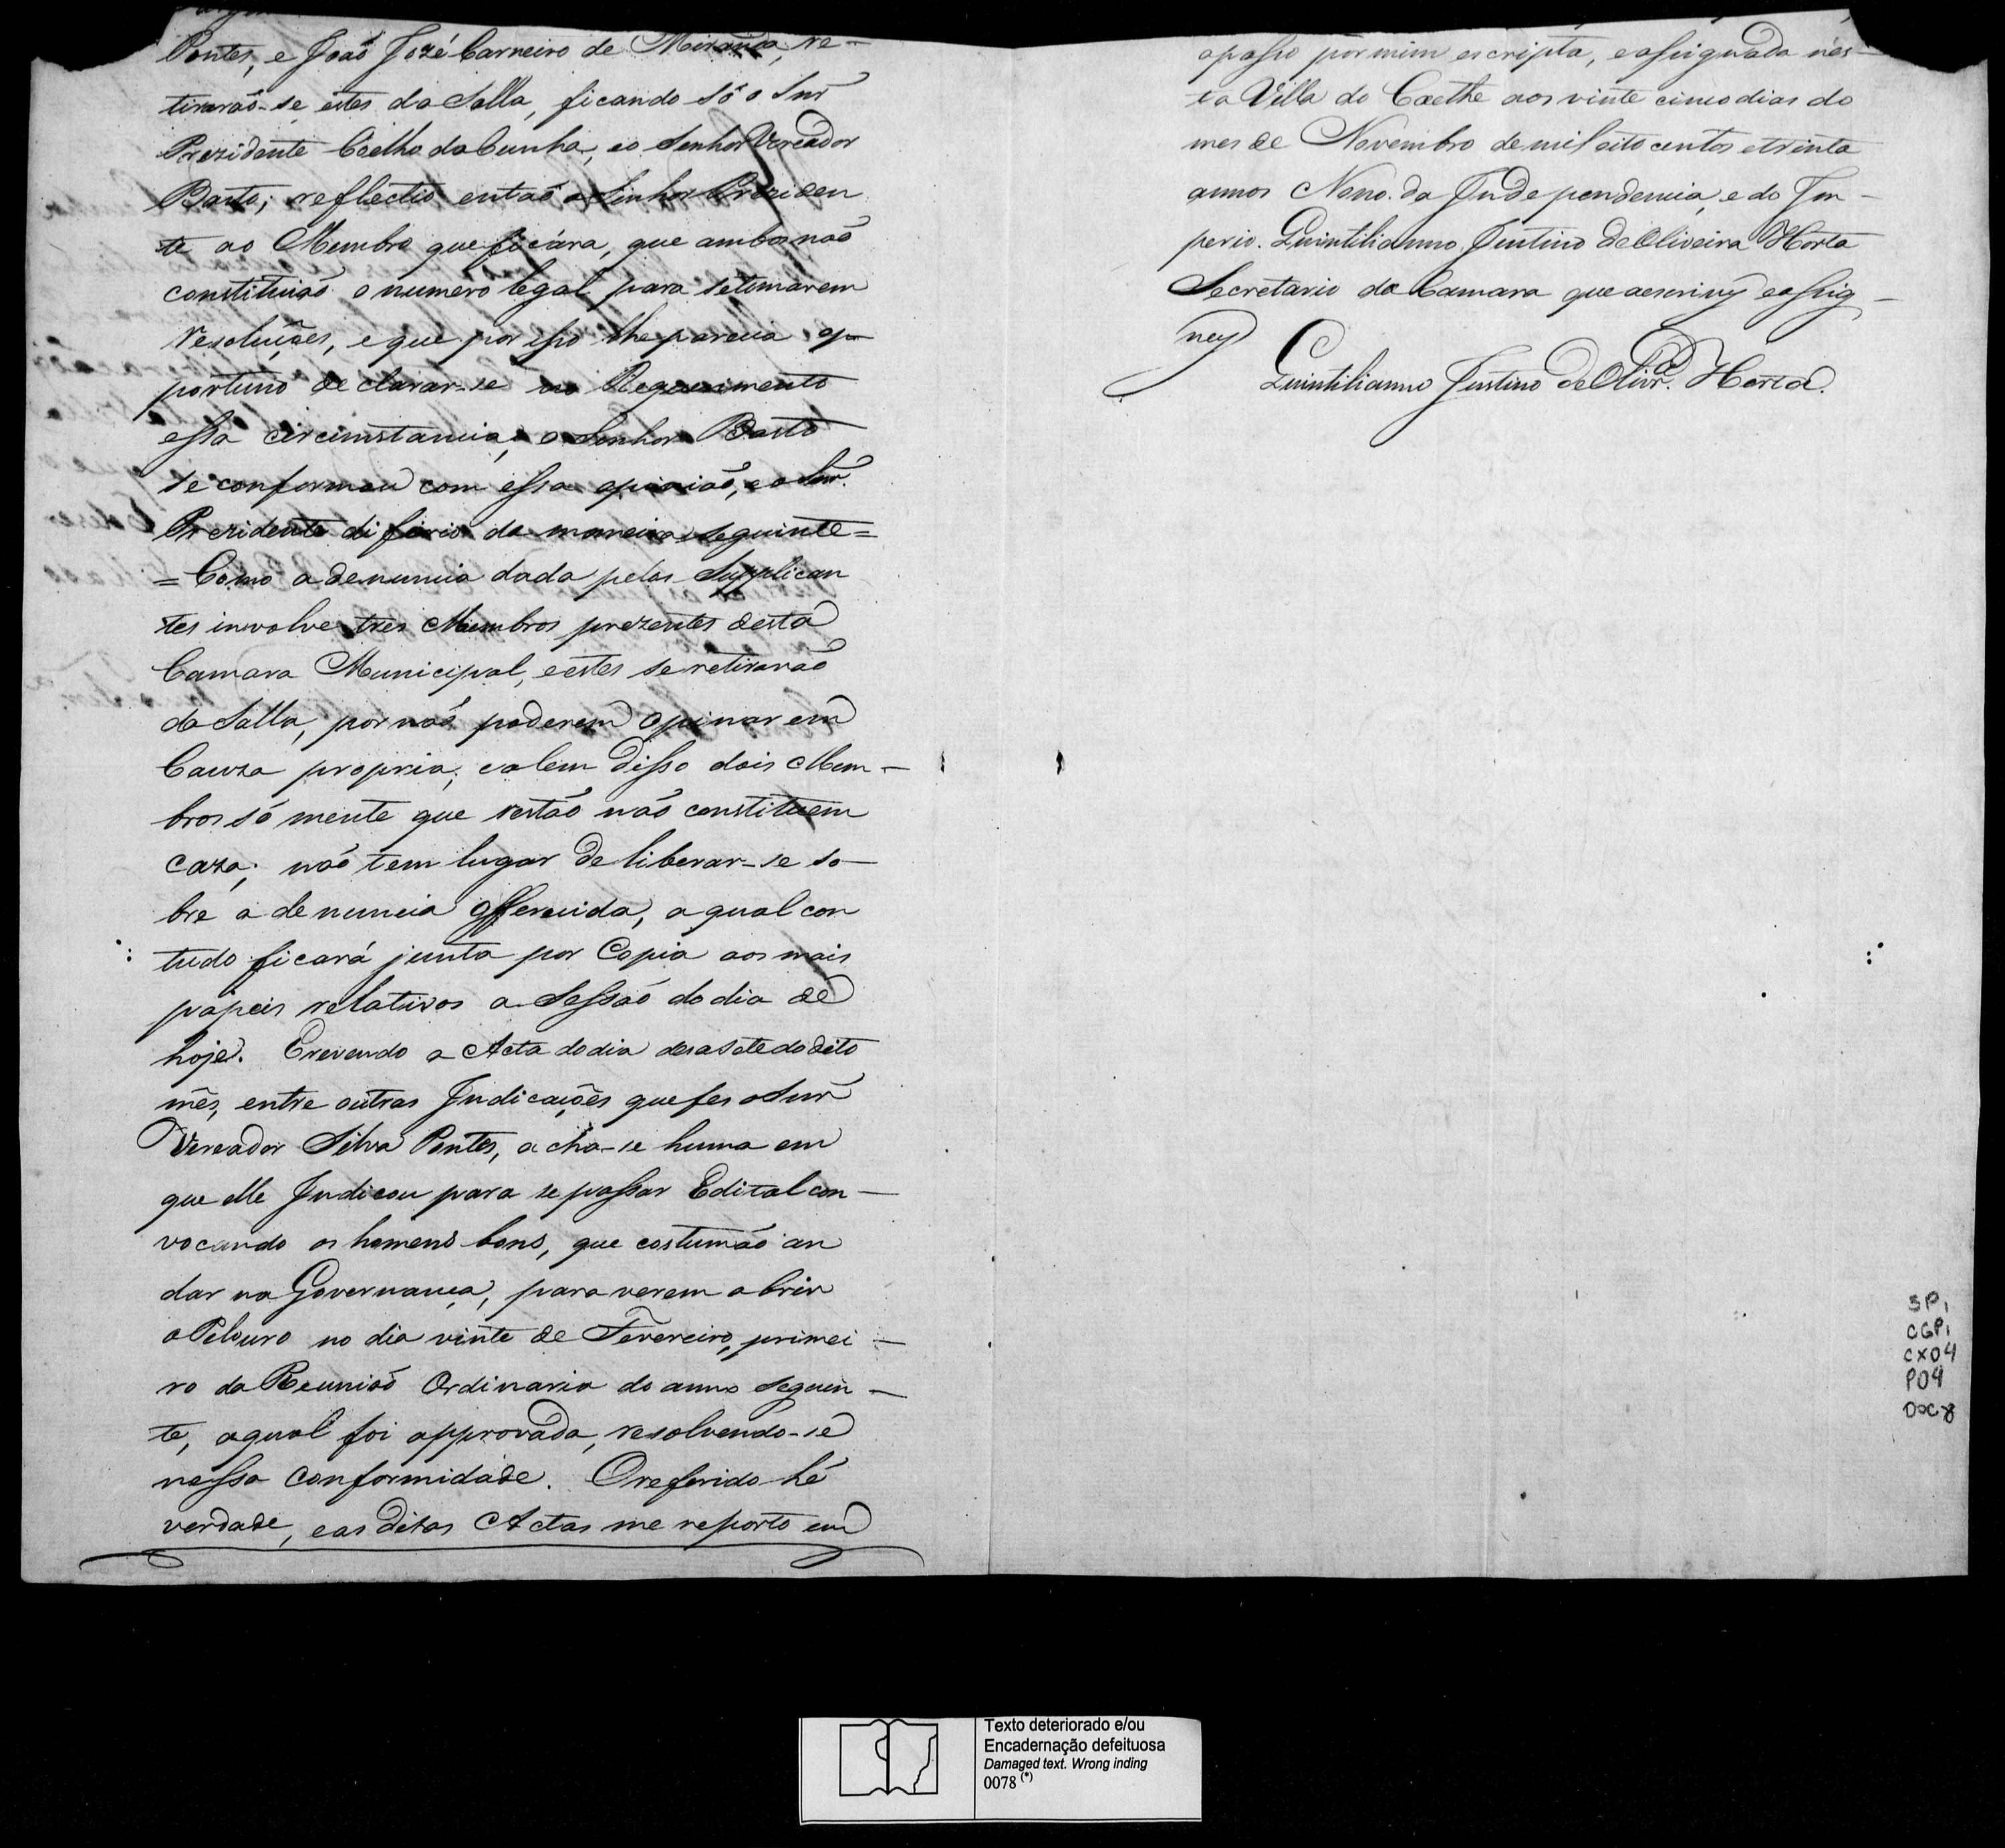 Pontes, e Joaõ Jozé Carneiro de Miranda, re-
tirarão-se estes da Salla, ficando só o Snr̃
Prezidente Coelho da Cunha, e o Senhor Vereador
Basto; reflectio entaõ o Senhor Preziden
te ao Membro que ficára, que ambos naõ
constituiaõ o numero legal para se tomarem
Resoluções, e que por isso lhe parecia op-
portuno declarar-se no Requerimento
essa circumstancia, o Senhor Basto
se conformou com essa opiniaõ, e o Snr̃.
Prezidente difirio da maneira seguinte=
=Como a denuncia dada pelos Supplican
tes involve tres Membros prezentes desta
Camara Municipal, e estes se retirarão
da Salla, por naõ poderem opinar em
Cauza propria; e alem disso dois Mem-
bros só mente que restão não constituem
caza; naõ tem lugar deliberar-se so-
bre a denuncia offerecida, a qual con
tudo ficará junta por Copia aos mais
papeis relativos a Sessaõ do dia de
hoje. E revendo a Acta do dia desasete do dito
mês, entre outras Indicações que fes o Snr̃
Vereador Silva Pontes, acha-se huma em
que elle Indicou para se passar Edital con-
vocando os homens bons, que costumão an
dar na Governança, para verem abrir
o Pelouro no dia vinte de Fevereiro, primei-
ro da Reuniaõ Ordinaria do anno seguin-
te, a qual foi approvada, resolvendo-se
nessa conformidade. O referido hé
verdade, e as ditas Actas me reporto em
a passo por mim escripta, e assignada nes-
ta Villa do Caethe aos vinte cinco dias do
mes de Novembro de mil oito centos e trinta
annos Nono da Independencia, e do Im-
perio. Quintilianno Justino de Oliveira Horta
Secretario da Camara que a escrivy e assig-
ney
Quintilianno Justino de Olivr.ª Horta.
SP1
CGP1
CX04
P04
Doc 8
Texto deteriorado e/ou
Encadernação defeituosa
Damaged text. Wrong inding
0078 (*)